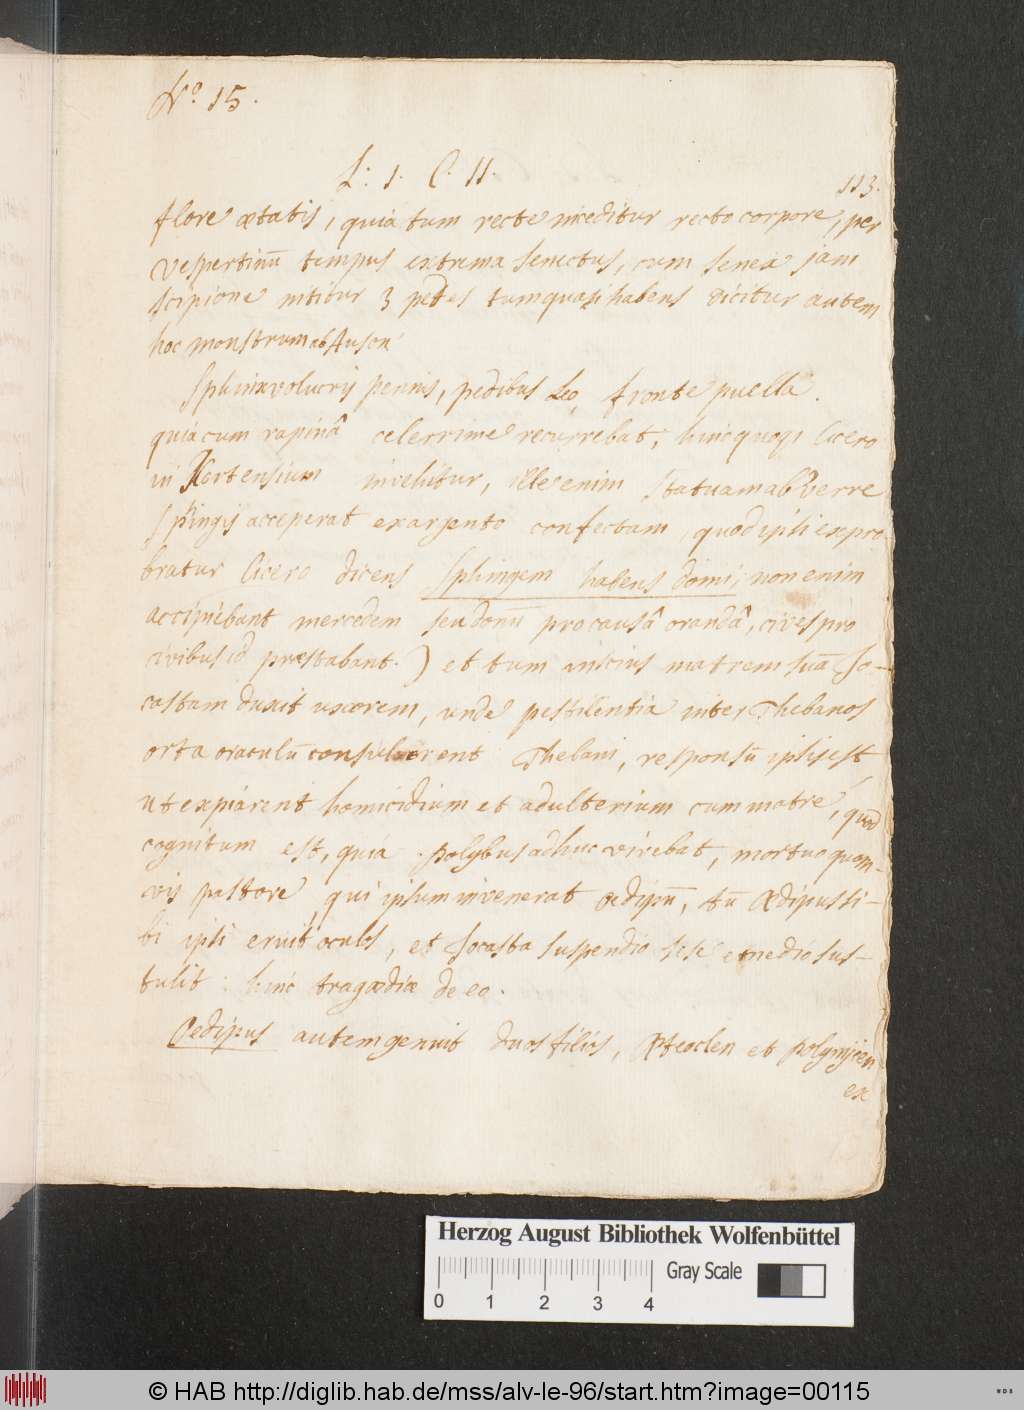 No. 15.
L: 1. C. 11.
113.
flore ætatis, quia tum recte inceditur recto corpore, per
vespertinū tempus extrema senectus, cum senex jam
scipione nititur 3 pedes tum quasi habens dicitur autem
hoc monstrum ab Auson
Sphinx volucris pennis, pedibus Leo, fronte puella.
quia cum rapinâ celerrime recurrebat, hinc quoq; Cicero
in Hortensium invehitur, ille enim statuam ab Verre
Sphingis acceperat ex argento confectam, quod ipsi expro
bratur Cicero dicens Sphingem habens domi, non enim
accipiebant mercedem seu donū pro causâ orandâ, cives pro
civibus id præstabant.) et tum inscius matrem suā Jo-
castam duxit uxorem, unde pestilentia inter Thebanos
orta oraculū consulerent Thebani, responsū ipsis est
ut expiarent homicidium et adulterium cum matre, quod
cognitum est, quia Polybus adhuc vivebat, mortuo quam-
vis pastore, qui ipsum invenerat œdipū, tū Œdipus si-
bi ipsi eruit oculos, et Jocasta suspendio sese e medio sus-
tulit: hinc tragœdiæ de eo.
Oedipus autem genuit duos filios, Æteoclen et Polynicen
ex
Herzog August Bibliothek Wolfenbüttel
Gray Scale
0 1 2 3 4
© HAB http://diglib.hab.de/mss/alv-le-96/start.htm?image=00115